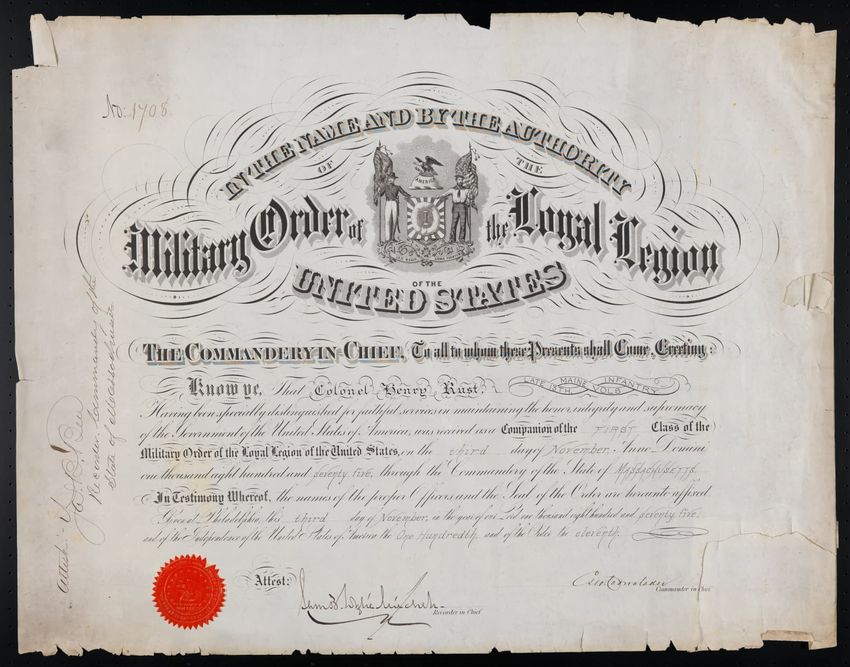 No. 1708
IN THE NAME AND BY THE AUTHORITY
OF THE
AMERICA
Military Order of the Loyal Legion
OF THE
UNITED STATES
THE COMMANDERY IN CHIEF, To all to whom these Presents shall Come, Greeting:
Know ye, That Colonel Henry Rust, LATE 13TH MAINE INFANTRY VOLS
Having been specially distinguished for faithful services in maintaining the honor, integrity and supremacy
of the Government of the United States of America, was received as a Companion of the FIRST Class of the
Military Order of the Loyal Legion of the United States, on the third day of November, Anno Domini
one thousand eight hundred and seventy five, through the Commandery of the State of Massachusetts
In Testimony Whereof, the names of the proper Officers and the Seal of the Order are hereunto affixed
Given at Philadelphia, this third day of November, in the year of our Lord one thousand eight hundred and seventy five
and of the Independence of the United States of America the One Hundredth, and of the Order the eleventh.
Attest:
Recorder in Chief
Geo Cadwalader
Commander in Chief
Attest:
Recorder Commandery of the
State of Massachusetts